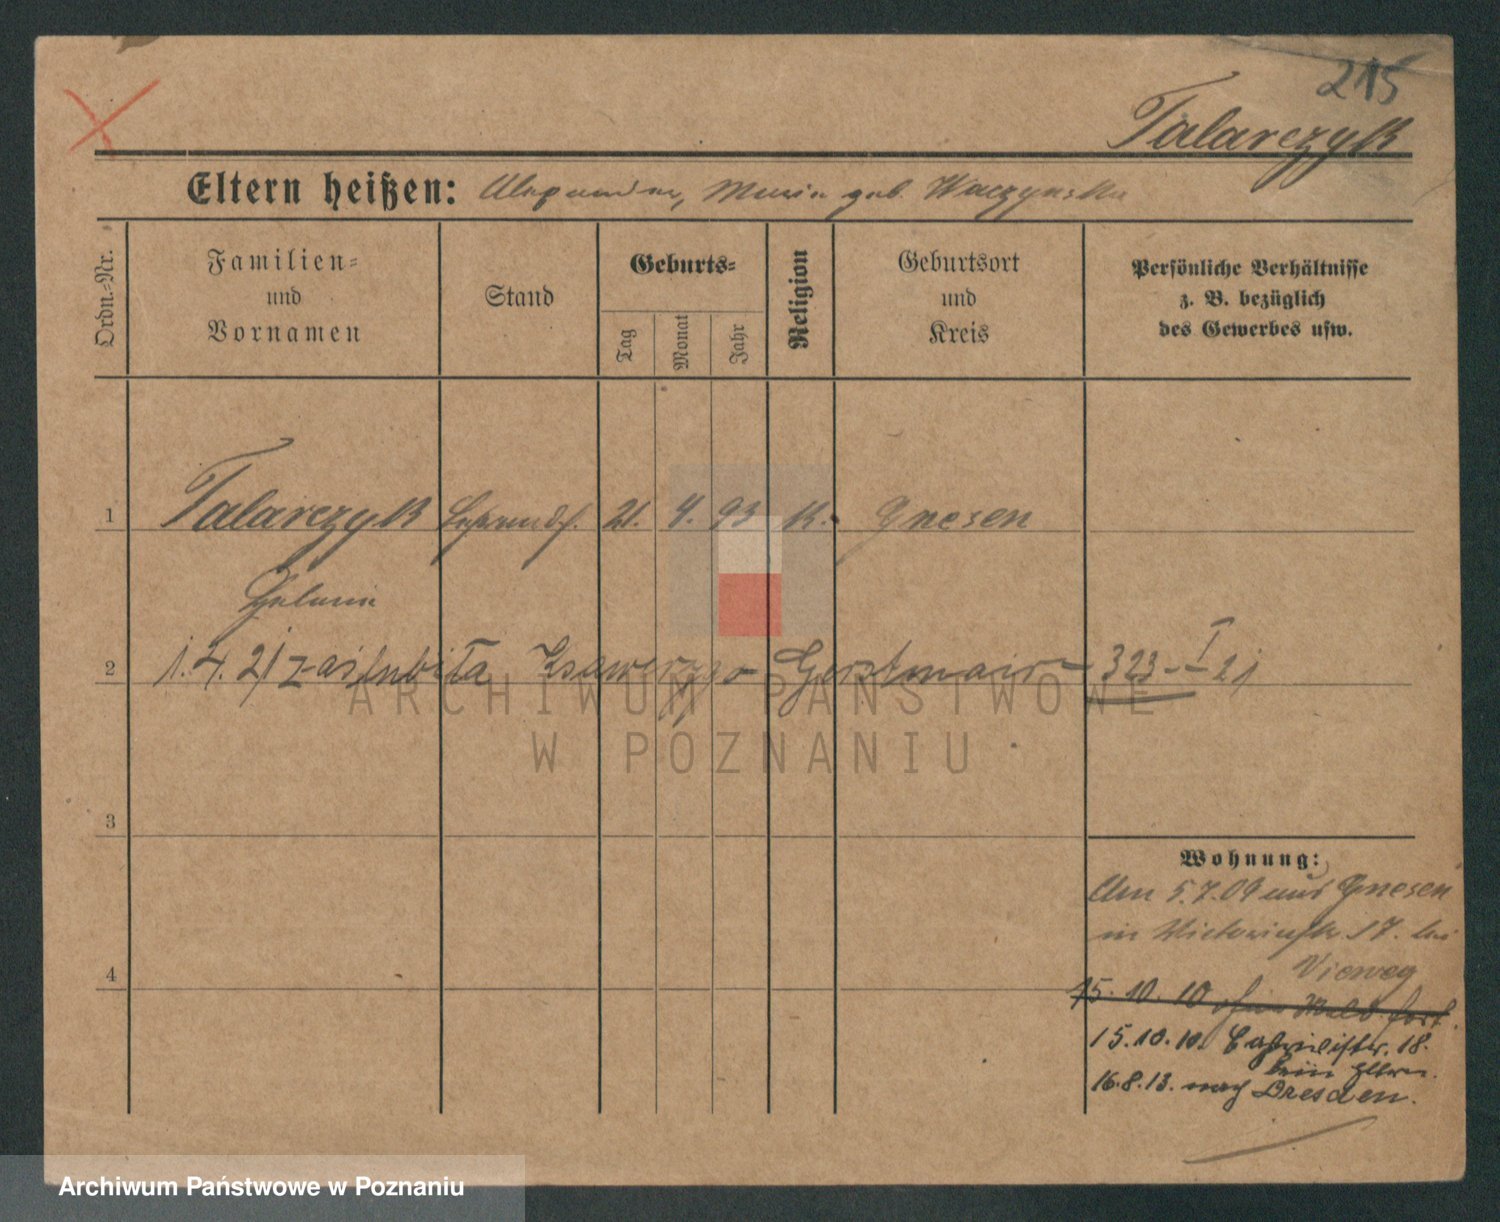 215
Talarczyk
Eltern heißen: Alexander, Maria geb. Waczynska
Ordn.-Nr.
Familien-
und
Vornamen
Stand
Geburts-
Tag
Monat
Jahr
Religion
Geburtsort
und
Kreis
Persönliche Verhältnisse
z. B. bezüglich
des Gewerbes usw.
1 Talarczyk 21. 4. 93 K. Gnesen
2 1.4.21 zaślubiła Ksawerygo Gerstmair - 323-I-21
3
4
Wohnung:
Am 5.7.09 aus Gnesen
in Victoriastr. 17. bei
Vieweg
15.10.10 ohne Meld. fort.
15.10.10. 18.
beim Eltern.
16.8.13. nach Dresden.
ARCHIWUM PAŃSTWOWE
W POZNANIU
Archiwum Państwowe w Poznaniu